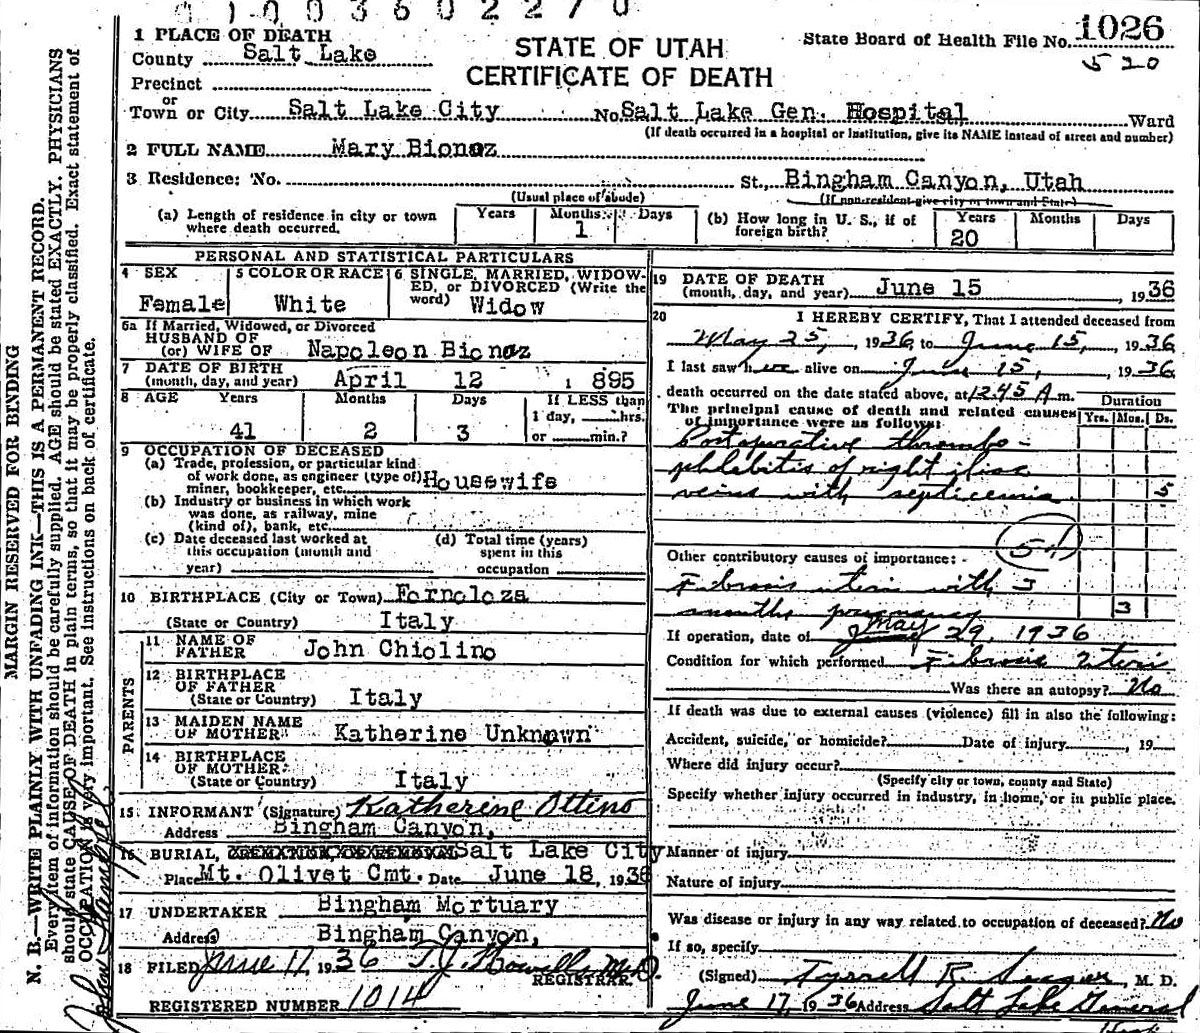 0 1 0 0 3 6 0 2 2 7 0
1026
State Board of Health File No.
520
STATE OF UTAH
CERTIFICATE OF DEATH
1 PLACE OF DEATH
County Salt Lake
Precinct
or
Town or City Salt Lake City No. Salt Lake Gen. Hospital Ward
(If death occurred in a hospital or institution, give its NAME instead of street and number)
2 FULL NAME Mary Bionaz
3 Residence: No. St., Bingham Canyon, Utah
(Usual place of abode) (If non-resident give city or town and State)
(a) Length of residence in city or town where death occurred. Years Months 1 Days
(b) How long in U. S., if of foreign birth? Years 20 Months Days
PERSONAL AND STATISTICAL PARTICULARS
4 SEX Female
5 COLOR OR RACE White
6 SINGLE, MARRIED, WIDOWED, or DIVORCED (Write the word) Widow
6a If Married, Widowed, or Divorced
HUSBAND OF
(or) WIFE OF Napoleon Bionaz
7 DATE OF BIRTH
(month, day, and year) April 12 1895
8 AGE Years 41 Months 2 Days 3 If LESS than
1 day, hrs.
or min.?
9 OCCUPATION OF DECEASED
(a) Trade, profession, or particular kind
of work done, as engineer (type of)
miner, bookkeeper, etc. Housewife
(b) Industry or business in which work
was done, as railway, mine
(kind of), bank, etc.
(c) Date deceased last worked at
this occupation (month and
year)
(d) Total time (years)
spent in this
occupation
10 BIRTHPLACE (City or Town) Fornoloza
(State or Country) Italy
PARENTS
11 NAME OF
FATHER John Chiolino
12 BIRTHPLACE
OF FATHER
(State or Country) Italy
13 MAIDEN NAME
OF MOTHER Katherine Unknown
14 BIRTHPLACE
OF MOTHER
(State or Country) Italy
15 INFORMANT (Signature) Katherine Ottino
Address Bingham Canyon,
16 BURIAL, CREMATION, OR REMOVAL Salt Lake City
Place Mt. Olivet Cmt. Date June 18, 1936
17 UNDERTAKER Bingham Mortuary
Address Bingham Canyon,
18 FILED June 17, 1936 T. J. Howells M.D.
REGISTRAR.
REGISTERED NUMBER 1014
19 DATE OF DEATH
(month, day, and year) June 15, 1936
20 I HEREBY CERTIFY, That I attended deceased from
May 25, 1936 to June 15, 1936
I last saw her alive on June 15, 1936
death occurred on the date stated above, at 12:45 A m.
The principal cause of death and related causes
of importance were as follows:
Duration
Yrs. Mos. Ds.
Postoperative thrombo-
phlebitis of right iliac
veins with septicemia 5
Other contributory causes of importance:
Fibrosis uteri with 3
months pregnancy 3
If operation, date of May 29, 1936
Condition for which performed Fibrosis Uteri
Was there an autopsy? No
If death was due to external causes (violence) fill in also the following:
Accident, suicide, or homicide? Date of injury , 19
Where did injury occur?
(Specify city or town, county and State)
Specify whether injury occurred in industry, in home, or in public place.
Manner of injury
Nature of injury
Was disease or injury in any way related to occupation of deceased? No
If so, specify
(Signed) Tyrrell R. Seager, M. D.
June 17, 1936 Address Salt Lake General
Hosp
MARGIN RESERVED FOR BINDING
N. B.—WRITE PLAINLY WITH UNFADING INK—THIS IS A PERMANENT RECORD.
Every item of information should be carefully supplied. AGE should be stated EXACTLY. PHYSICIANS
should state CAUSE OF DEATH in plain terms, so that it may be properly classified. Exact statement of
OCCUPATION is very important. See instructions on back of certificate.